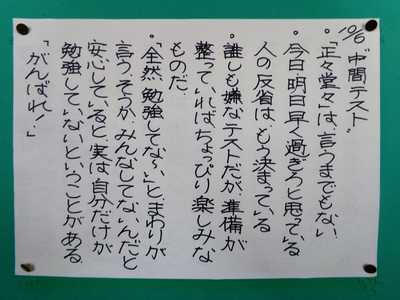 10/6 "中間テスト"
・「正々堂々」は、言うまでもない
・今日、明日早く過ぎろと思っている
人の反省は、もう決まっている
・誰しも嫌なテストだが、準備が
整っていれば、ちょっぴり楽しみな
ものだ。
・「全然、勉強してな〜い」と、まわりが
言う。そうか、みんなしてないんだと
安心していると、実は自分だけが
勉強していないということがある
「がんばれ!!」